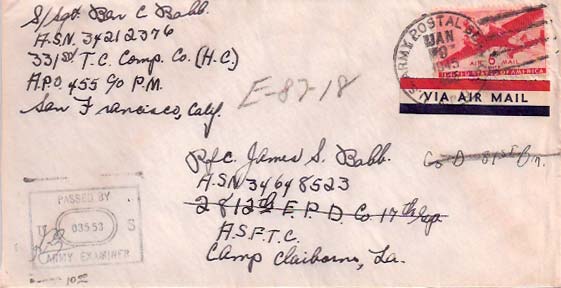 S/Sgt. Ben C Babb.
A.S.N. 34212376
331st T.C. Comp. Co. (H.C.)
A.P.O. 455 C/o P.M.
San Francisco, Calif.
E-87-18
ARMY POSTAL SE
JAN
1945
AIR 6 MAIL
UNITED STATES OF AMERICA
VIA AIR MAIL
Pfc. James S. Babb.
Co D 81st Bn.
A.S.N. 34648523
2812th E.P.D. Co 17th Gp.
A.S.F.T.C.
Camp Claiborne, La.
PASSED BY
U 03553 S
ARMY EXAMINER